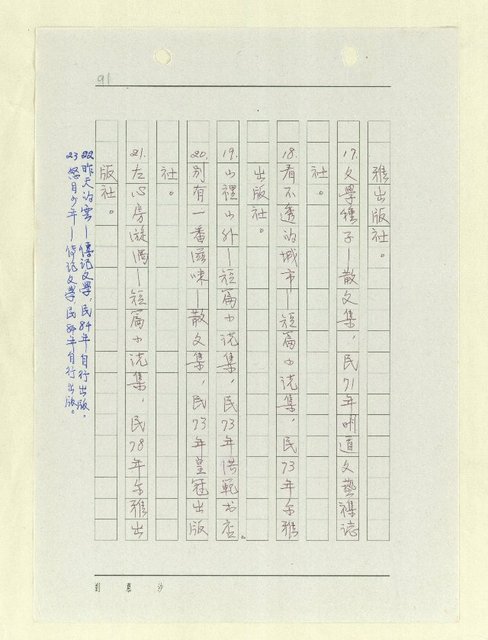 91
雅出版社。
17.文學種子—散文集，民71年明道文藝雜誌
社。
18.看不透的城市—短篇小說集，民73年尔雅
出版社。
19.山裡山外—短篇小說集，民73年洪範书店。
20.别有一番滋味—散文集，民73年皇冠出版
社。
21.左心房漩渦—短篇小說集，民78年尔雅出
版社。
22昨天的雲—傳記文學，民84年自行出版。
23怒目少年—傳記文學，民84年自行出版。
劉慕沙